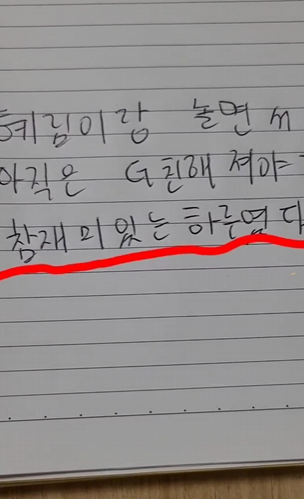 혜림이랑 놀면 m
아직은 G친해져야
참재미있는하루였다